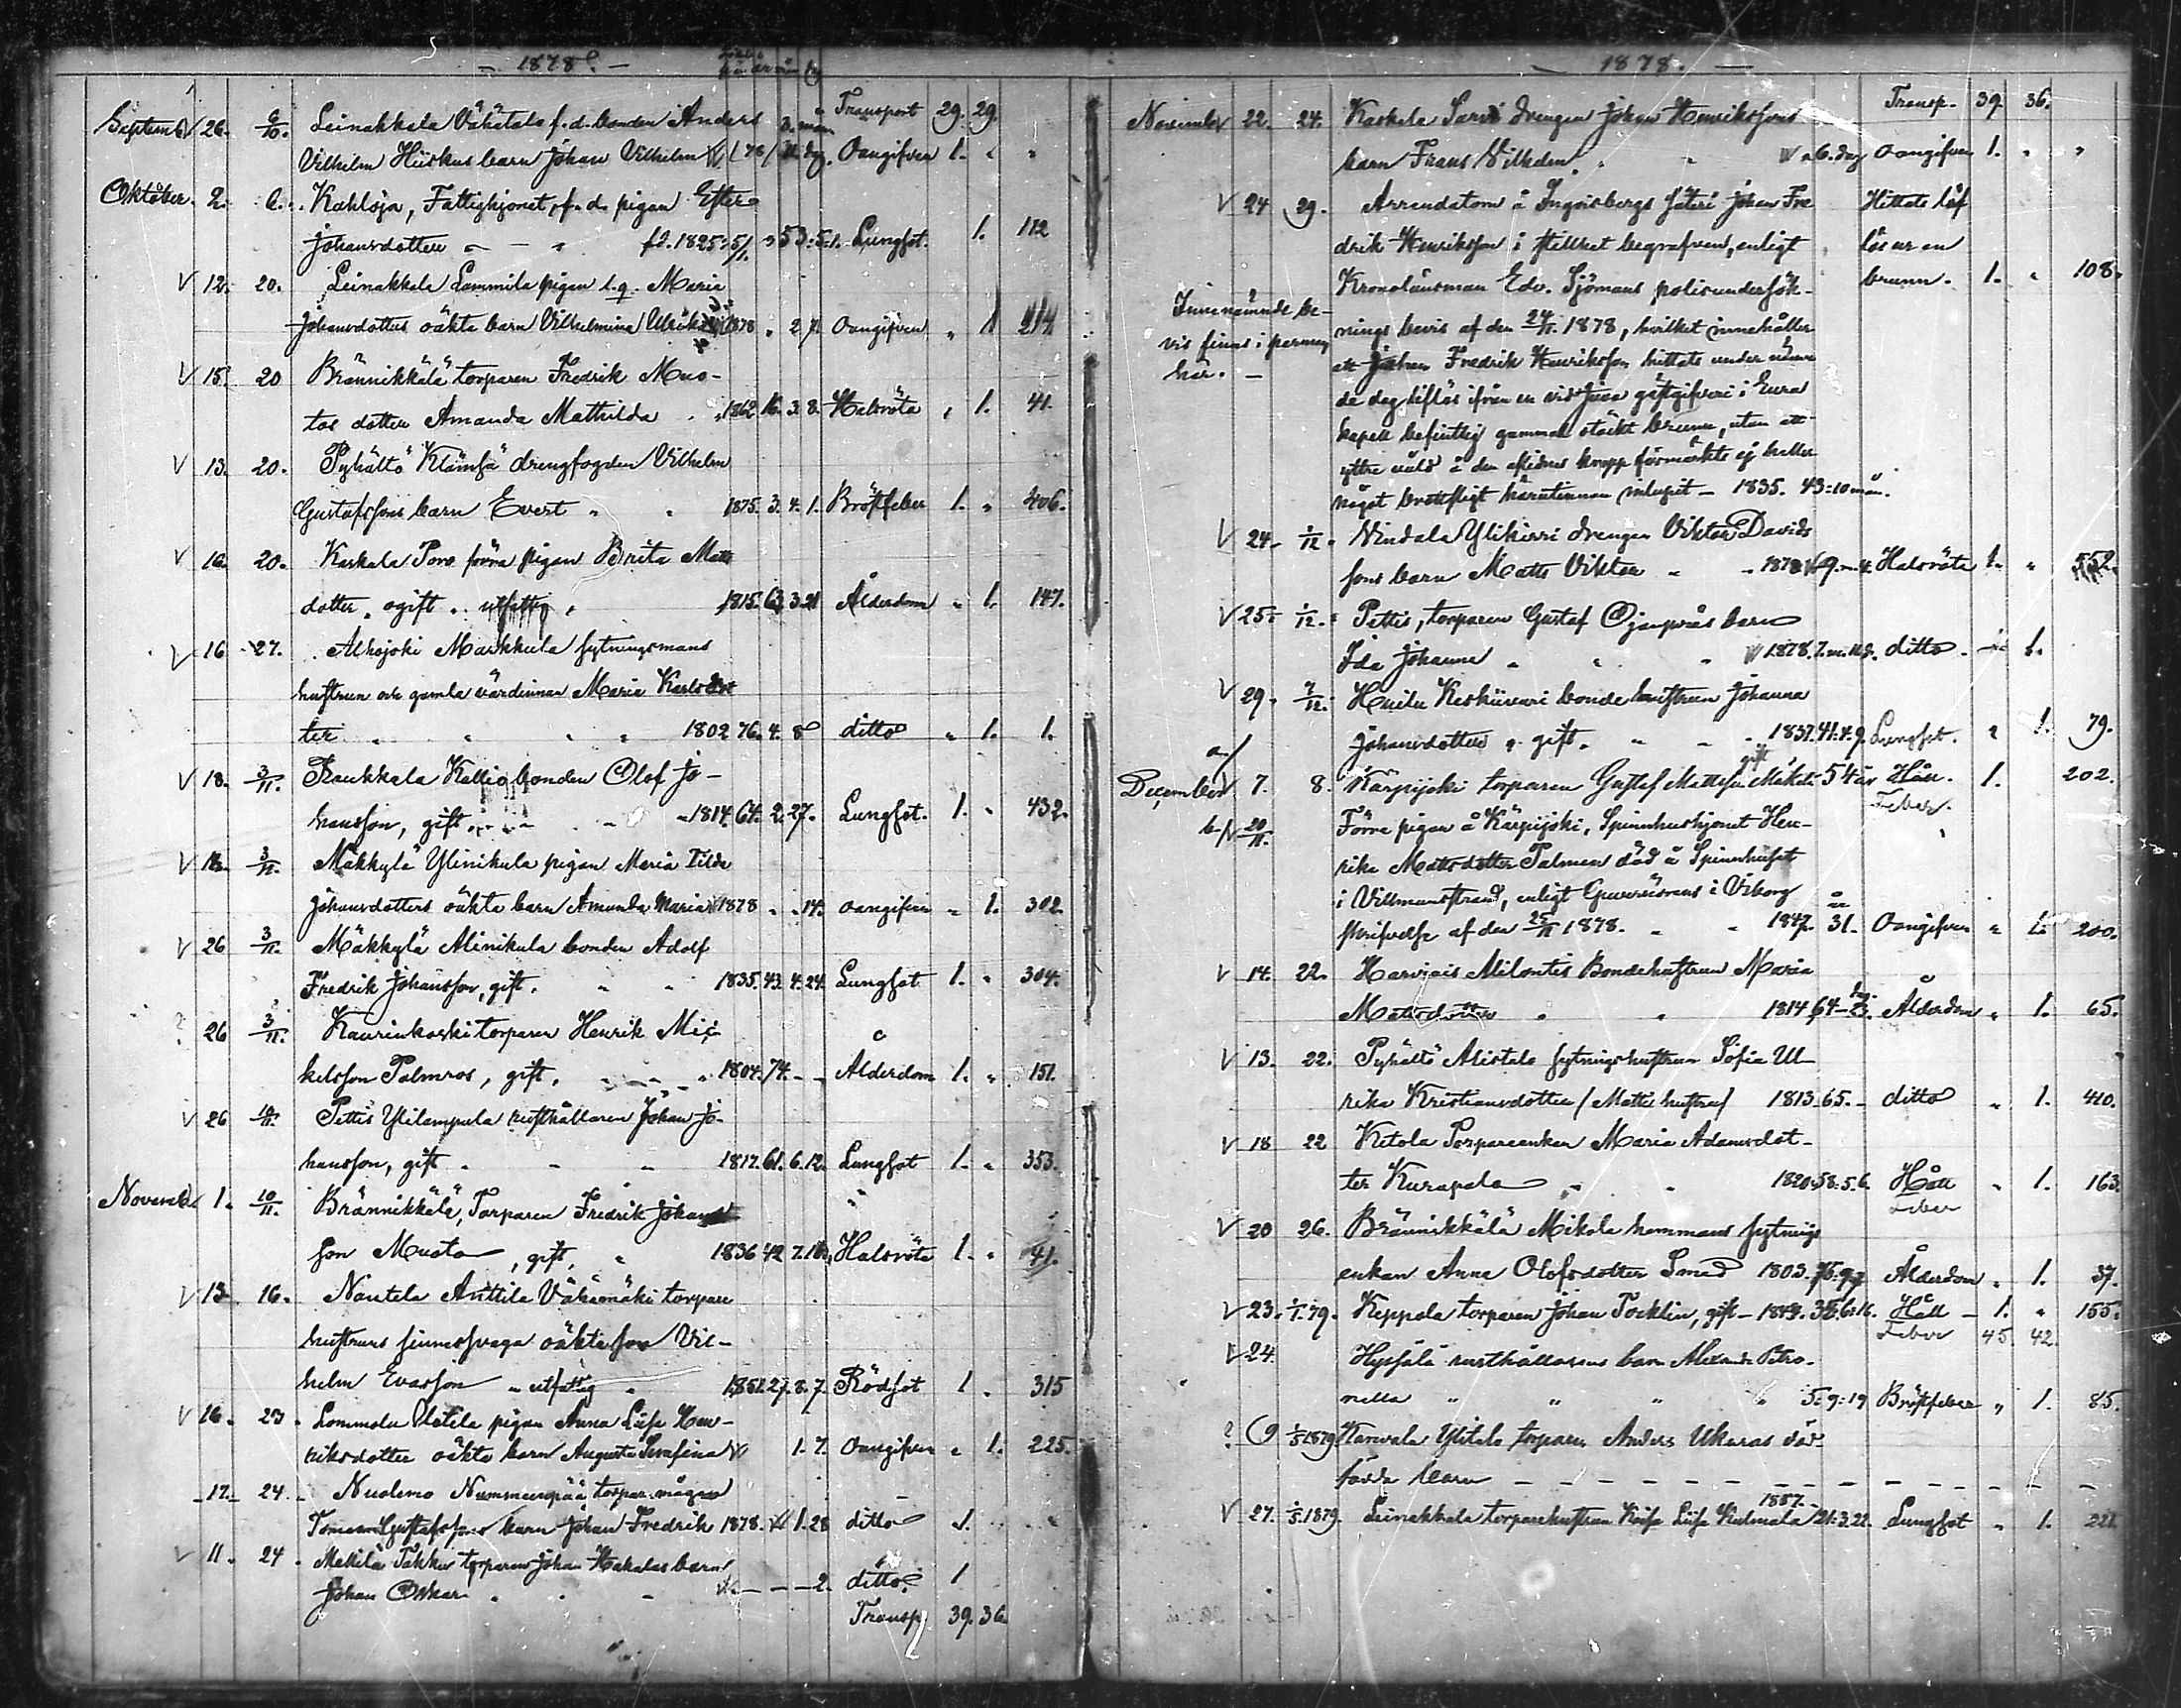 - 1878. -
Transport 29. 29.
Septemb. 26. 6/10. Leinakkala Vähätalo f.d. bonden Anders 3. mån
Vilhelm Hiirkus barn Johan Vilhelm dag. Oangifven 1. " "
Oktober 2. 6. Kahloja, Fattighjonet, f.d. pigan Ester
Johansdotter " - " fd. 1825 5/1. 53:5:1. Lungsot. 1. 112
V 12. 20. Leinakkala Lammila pigan Maria
Johansdotters oäkta barn Vilhelmina Ulrika 1878 " 2.7. Oangifven " 1 214
V 15. 20 Brännikkälä torparen Fredrik Muo-
tos dotter Amanda Mathilda " 1862 16. 3. 8. Halsröta " 1. 41.
V 13. 20. Pyhältö Klämsä drengfogden Vilhelm
Gustafssons barn Evert " " 1875. 3. 4. 1. Bröstfeber 1. " 406.
V 16. 20. Kaskala Poro förra pigan Brita Matts
dotter, ogift " utfattig " 1815. 63. 3. 21 Ålderdom " 1. 147.
V 16 27. Alhojoki Markkula sytningsmans
hustrun och gamla värdinnan Maria Karlsdot
ter " " " " 1802 76. 4. 8 ditto " 1. 1.
V 18. 3/11. Raukkala Kallio bonden Olof Jo-
hansson, gift " " 1814. 64. 2. 27. Lungsot. 1. " 432.
V 18. 3/11. Mäkkylä Ylinikula pigan Maria Tilda
Johansdotters oäkta barn Amanda Maria 1878 " " 14. oangifven " 1. 302.
V 26 3/11. Mäkkylä Alinikula bonden Adolf
Fredrik Johansson, gift. " " 1835. 43. 4. 24. Lungsot 1. " 304.
? 26 3/11. Kaurinkoski torparen Henrik Mic-
kelsson Palmros, gift. " " " 1804. 74. - - Ålderdom 1. " 151.
V 26 10/11. Pettis Ylilampula rusthållaren Johan Jo-
hansson, gift " " " 1817. 61. 6. 12. Lungsot 1. " 353.
Novemb. 1. 10/11. Brännikkälä, Torparen Fredrik Johans
son Muoto, gift, " 1836 42 7. Halsröta 1. " 41.
V 13 16. Nautela Anttila Vähämäki torpare
hustruns sinnessvaga oäkta son Vil-
helm Evasson " utfattig " 1851. 27. 8. 7. Rödsot 1 " 315
V 16. 23. Lammala Ulotila pigan Anna Lisa Hen-
riksdotter oäkta barn Augusta Serafina 1. 7. Oangifven " 1. 225.
17. 24. Nuolemo Nummenpää torpar mågen
Tomas Gustafssons barn Johan Fredrik 1878. 1. 28 ditto 1.
V 11. 24. Mellilä Takku torparen Johan Hakalas barn
Johan Oskar " " " - - - 2. ditto. 1
Transp. 39. 36.
- 1878. -
Transp. 39. 36.
November 22. 24. Kaskala Sarvi drengen Johan Henrikssons
barn Frans Vilhelm. " " 6. dag Oangifven 1. " "
V 24 29. Arrendatorn å Ingoisbergs säteri Johan Fre Hittats lif
drik Henriksson i stillhet begrafven, enligt lös ur en
Kronolänsman Edv. Sjömans polisundersök- brunn. 1. " 108.
Innenämnde be-
vis finnes i permen
här. -
nings bevis af den 24/11. 1878, hvilket innehåller
att Johan Fredrik Henriksson hittats under nämn
de dag liflös ifrån en vid Juva gästgifveri i Eura
kapell befintlig gammal otäckt brunn, utan att
yttre våld å den aflidnes kropp förmärkts ej heller
något brottsligt härutinnan inlupit - 1835. 43:10 mån.
V 24. 1/12. Nindala Ylikirri drengen Viktor Davids
sons barn Matts Viktor " " 1878 9. - 4. Halsröta 1. " 552.
V 25. 1/12. Pettis, torparen Gustaf Ojanperäs barn
Ida Johanna " " " 1878. 7. m. 11 d. ditto. - 1.
V 29. 7/12. Huilu Keskiivari bonde hustrun Johanna
Johansdotter " gift. " " " 1837. 41. 4. 9. Lungsot. " 1. 79.
a/
December 7. 8. Kärpijoki torparen Gustaf Mattsson gift 54 år Håll. 1. 202.
Feber.
b/ 20/11. Förra pigan å Kärpijoki, Spinnhushjonet Hen-
rika Mattsdotter Palmen död å Spinnhuset
i Villmanstrand, enligt Guvernörens i Viborg
skrifvelse af den 25/11 1878. " " 1847. 31. Oangifven " 1. 200.
V 14. 22. Harviais Alilontis Bondehustrun Maria
Mattsdotter " " 1814 64 - 3. dag. Ålderdom " 1. 65.
V 13. 22. Pyhältö Alistalo sytningshustrun Sofia Ul
rika Kristiansdotter / Matts hustru / 1813. 65. - ditto " 1. 410.
V 18 22 Ketola Torpareenkan Maria Adamsdot-
ter Kurapala " " 1820. 58. 5. 6. Håll " 1. 163.
Feber
V 20 26. Brännikkälä Mikola hemmans sytnings
enkan Anna Olofsdotter Smed 1803. 75. 9. 7 Ålderdom " 1. 37.
V 23. 1/1. 79. Keppola torparen Johan Tocklin, gift - 35. 6. 16. Håll - 1. " 155.
Feber 45. 42.
V 24. Hyssälä rusthållarens barn Alexandra Petro-
nella " " " " 5:9:19 Bröstfeber " 1. 85.
? 9 1/5 1879 Karvala Ylitalo torparen Anders Ukuras död
födda barn - - - - - - - - - - - -
V 27. 1/5. 1879. Leinakkala torparehustrun Kaisa Lisa Kulmala 1857. 21:3.22. Lungsot " 1. 221.